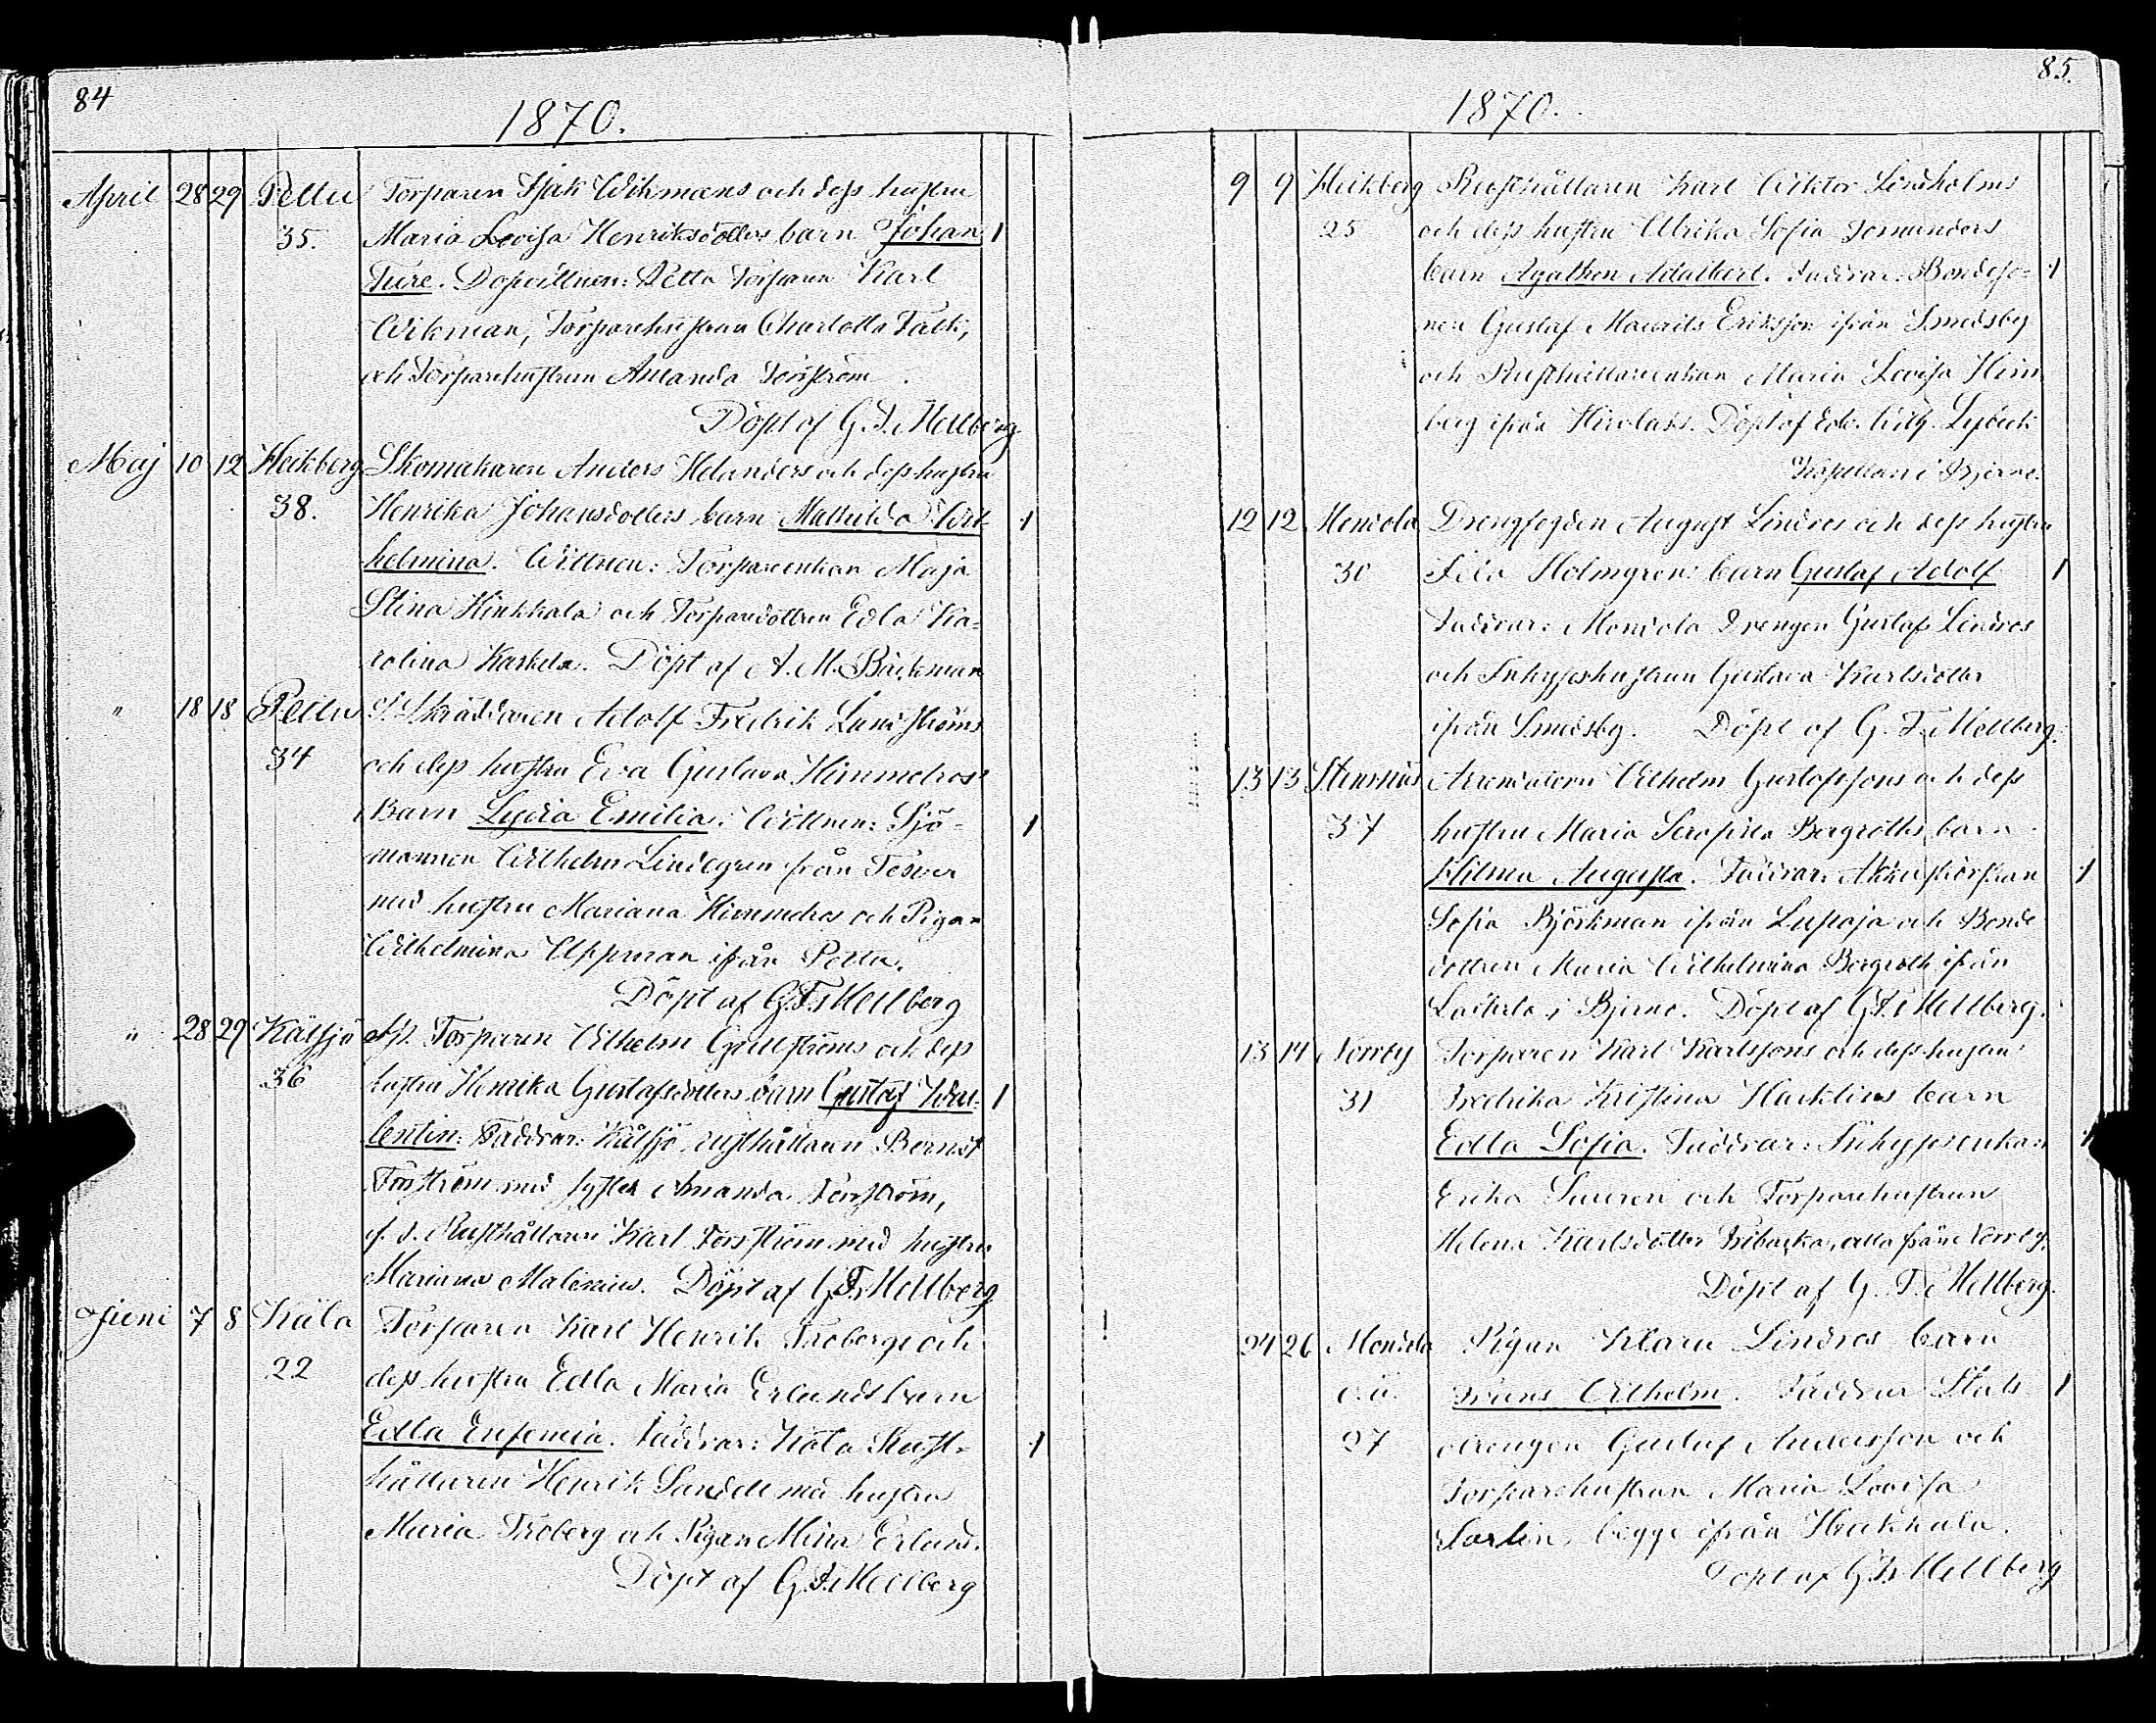 84
1870.
April 28 29 Pettu Torparen Isak Wikmans och dess hustru
35. Maria Lovisa Henriksdotters barn Johan 1
Ture. Dopvittnen: Pettu Torparen Karl
Wikman, Torparehustrun Charlotta Falk,
och Torparehustrun Amanda Forsström.
Döpt af G. F. Mellberg
Maj 10 12 Heikberg Skomakaren Anders Helanders och dess hustru
38. Henrika Johansdotters barn Mathilda Wil- 1
helmina. Wittnen: Torpareenkan Maja
Stina Hinkkala och Torparedottren Edla Ka=
rolina Kaskela. Döpt af A. M. Bäckman
" 18 18 Pettu S. Skräddaren Adolf Fredrik Lundströms
34 och dess hustru Eva Gustava Himmelros'
Barn Lydia Emilia. Wittnen: Sjö= 1
mannen Wilhelm Lindegren från
med hustru Mariana Himmelros och Pigan
Wilhelmina Uppman ifrån Pettu.
Döpt af G. F. Mellberg
" 28 29 Kälsjö Torparen Vilhelm Gullströms och dess
36 hustru Henrika Gustafsdotters barn Gustaf Wal= 1
lentin. Faddrar: Kälsjö rusthållaren Berndt
Forsström med syster Amanda Forsström,
f. d. Rusthållaren Karl Forsström med hustru
Mariana Malenius. Döpt af G. F. Mellberg
Juni 7 8 Kåla Torparen Karl Henrik Frobergs och
22 dess hustru Edla Maria Erlunds barn
Edla Eufemia. Faddrar: Kåla Rust= 1
hållaren Henrik Sandell med hustru
Maria Froberg och Pigan Mina Erlund.
Döpt af G. F. Mellberg
85.
1870.
9 9 Heikberg Rusthållaren Karl Viktor Lindholms
25 och dess hustru Ulrika Sofia
barn Agathon Adalbert. Faddrar: Bondeso= 1
nen Gustaf Maurits Eriksson ifrån Smedsby
och Rusthållareenkan Maria Lovisa Him
berg ifrån Döpt af Edv. Wilh. Lybeck
Kapellan i Bjerno.
12 12 Mondola Drengfogden August Lindros och dess hustru
30 Holmgrens barn Gustaf Adolf 1
Faddrar: Mondola Drengen Gustaf Lindros
och Inhyseshustrun Gustava Karlsdotter
ifrån Smedsby. Döpt af G. F. Mellberg.
13 13 Stensnäs Arrendatorn Vilhelm Gustafssons och dess
37 hustru Maria Serafina Bergroths barn
Hilma Augusta. Faddrar: 1
Sofia Björkman ifrån Lupaja och Bonde
dottren Maria Wilhelmina Bergroth ifrån
i Bjerno. Döpt af G. F. Mellberg.
13 14 Norrby Torparen Karl Karlssons och dess hustru
31 Fredrika Kristina Hacklins barn
Edla Sofia. Faddrar: Inhysesenkan 1
Erika och Torparehustrun
Helena Karlsdotter Tribacka, alla från Norrby.
Döpt af G. F. Mellberg.
24 26 Mondola Pigan Klara Lindros barn
o.ä. Frans Vilhelm. Faddrar Stats 1
27 drengen Gustaf Andersson och
Torparehustrun Maria Lovisa
Sarlin, begge ifrån
Döpt af G. F. Mellberg